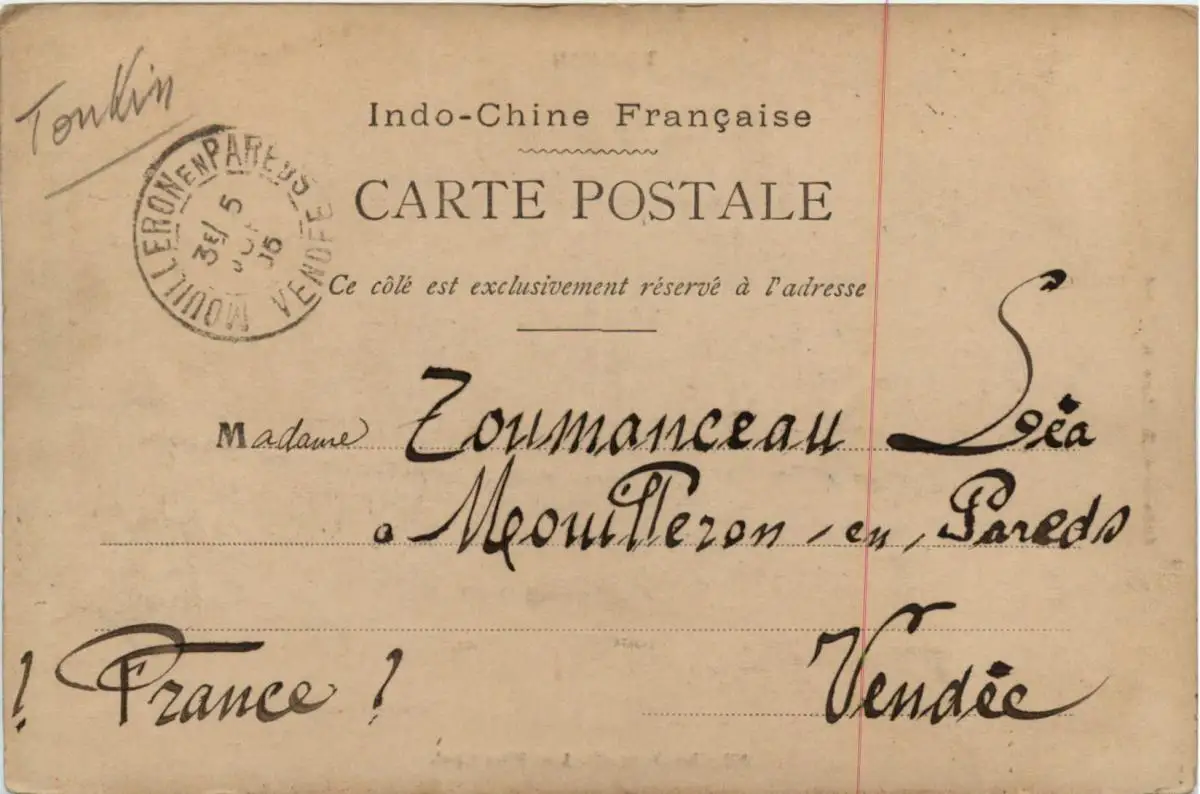 Tonkin
Indo-Chine Française
CARTE POSTALE
MOUILLERON EN PAREDS
VENDEE
3E/ 5
Ce côté est exclusivement réservé à l'adresse
Madame Toumanceau Léa
a Mouilleron-en-Pareds
Vendée
! France !